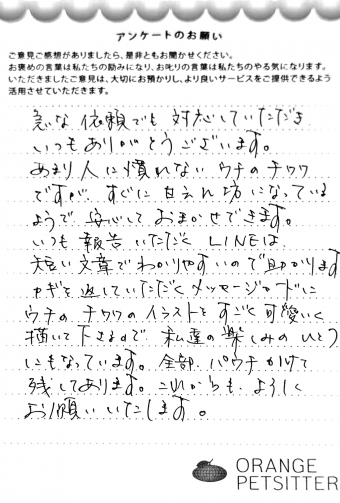 アンケートのお願い
ご意見ご感想がありましたら、是非ともお聞かせください。
お褒めの言葉は私たちの励みになり、お叱りの言葉は私たちのやる気になります。
いただきましたご意見は、大切にお預かりし、より良いサービスをご提供できるよう
活用させていただきます。
急な依頼でも対応していただき
いつもありがとうございます。
あまり人に慣れないウチのチワワ
ですが、すぐに甘えん坊になっている
ようで、安心しておまかせできます。
いつも報告いただくLINEは、
短い文章でわかりやすいので助かります
カギを返していただくメッセージカードに
ウチのチワワのイラストをすごく可愛いく
描いて下さるので、私達の楽しみのひとつ
にもなっています。全部、パウチかけて
残してあります。これからも、よろしく
お願いいたします。
ORANGE
PETSITTER